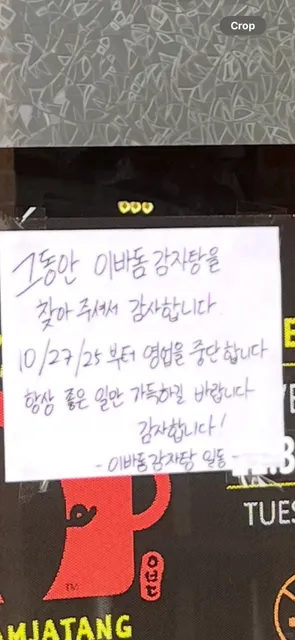 Crop
그동안 이바돔감자탕을
찾아 주셔서 감사합니다
10/27/25 부터 영업을 중단합니다
항상 좋은 일만 가득하길 바랍니다
감사합니다!
- 이바돔감자탕 일동 -
TUES
TM
MJATANG